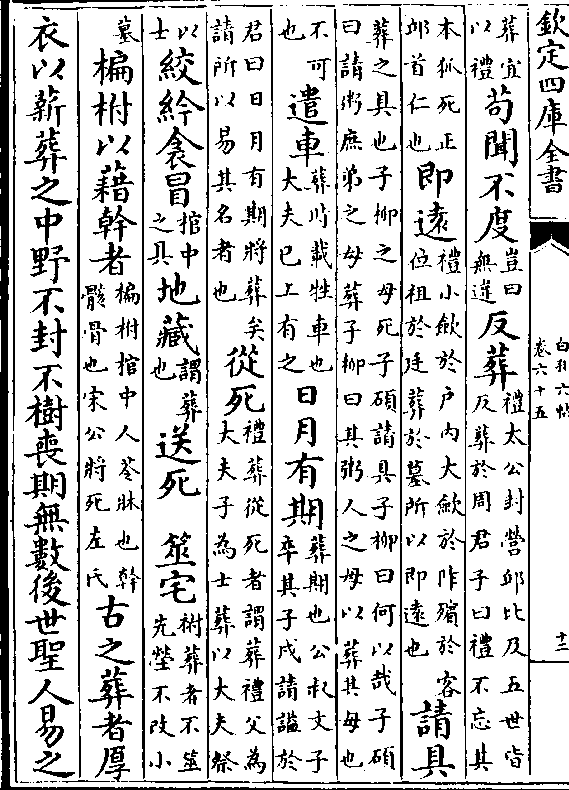 欽定四庫全書
白孔六帖
卷六十五
十三
葬宜
以禮
苟聞不度
豈曰
無違
反葬
禮太公封營邱比及五世皆
反葬於周君子曰禮不忘其
本狐死正
邱首仁也
即遠
禮小歛於戶内大歛於阼殯於客
位祖於廷葬於墓所以即遠也
請具
葬之具也子柳之母死子碩請具子柳曰何以哉子碩
曰請粥庶弟之母葬子柳曰其粥人之母以葬其母也
不可
也
遣車
葬所載牲車也
大夫已上有之
日月有期
葬期也公叔文子
卒其子戍請諡於
君曰日月有期將葬矣
請所以易其名者也
從死
禮葬從死者謂葬禮父為
大夫子為士葬以大夫祭
以
士
絞紟衾冒
棺中
之具
地藏
謂葬
也
送死
筮宅
祔葬者不筮
先塋不改小
墓
楄柎以藉幹者
楄柎棺中人苓牀也幹
骸骨也宋公將死左氏
古之葬者厚
衣以薪葬之中野不封不樹喪期無數後世聖人易之